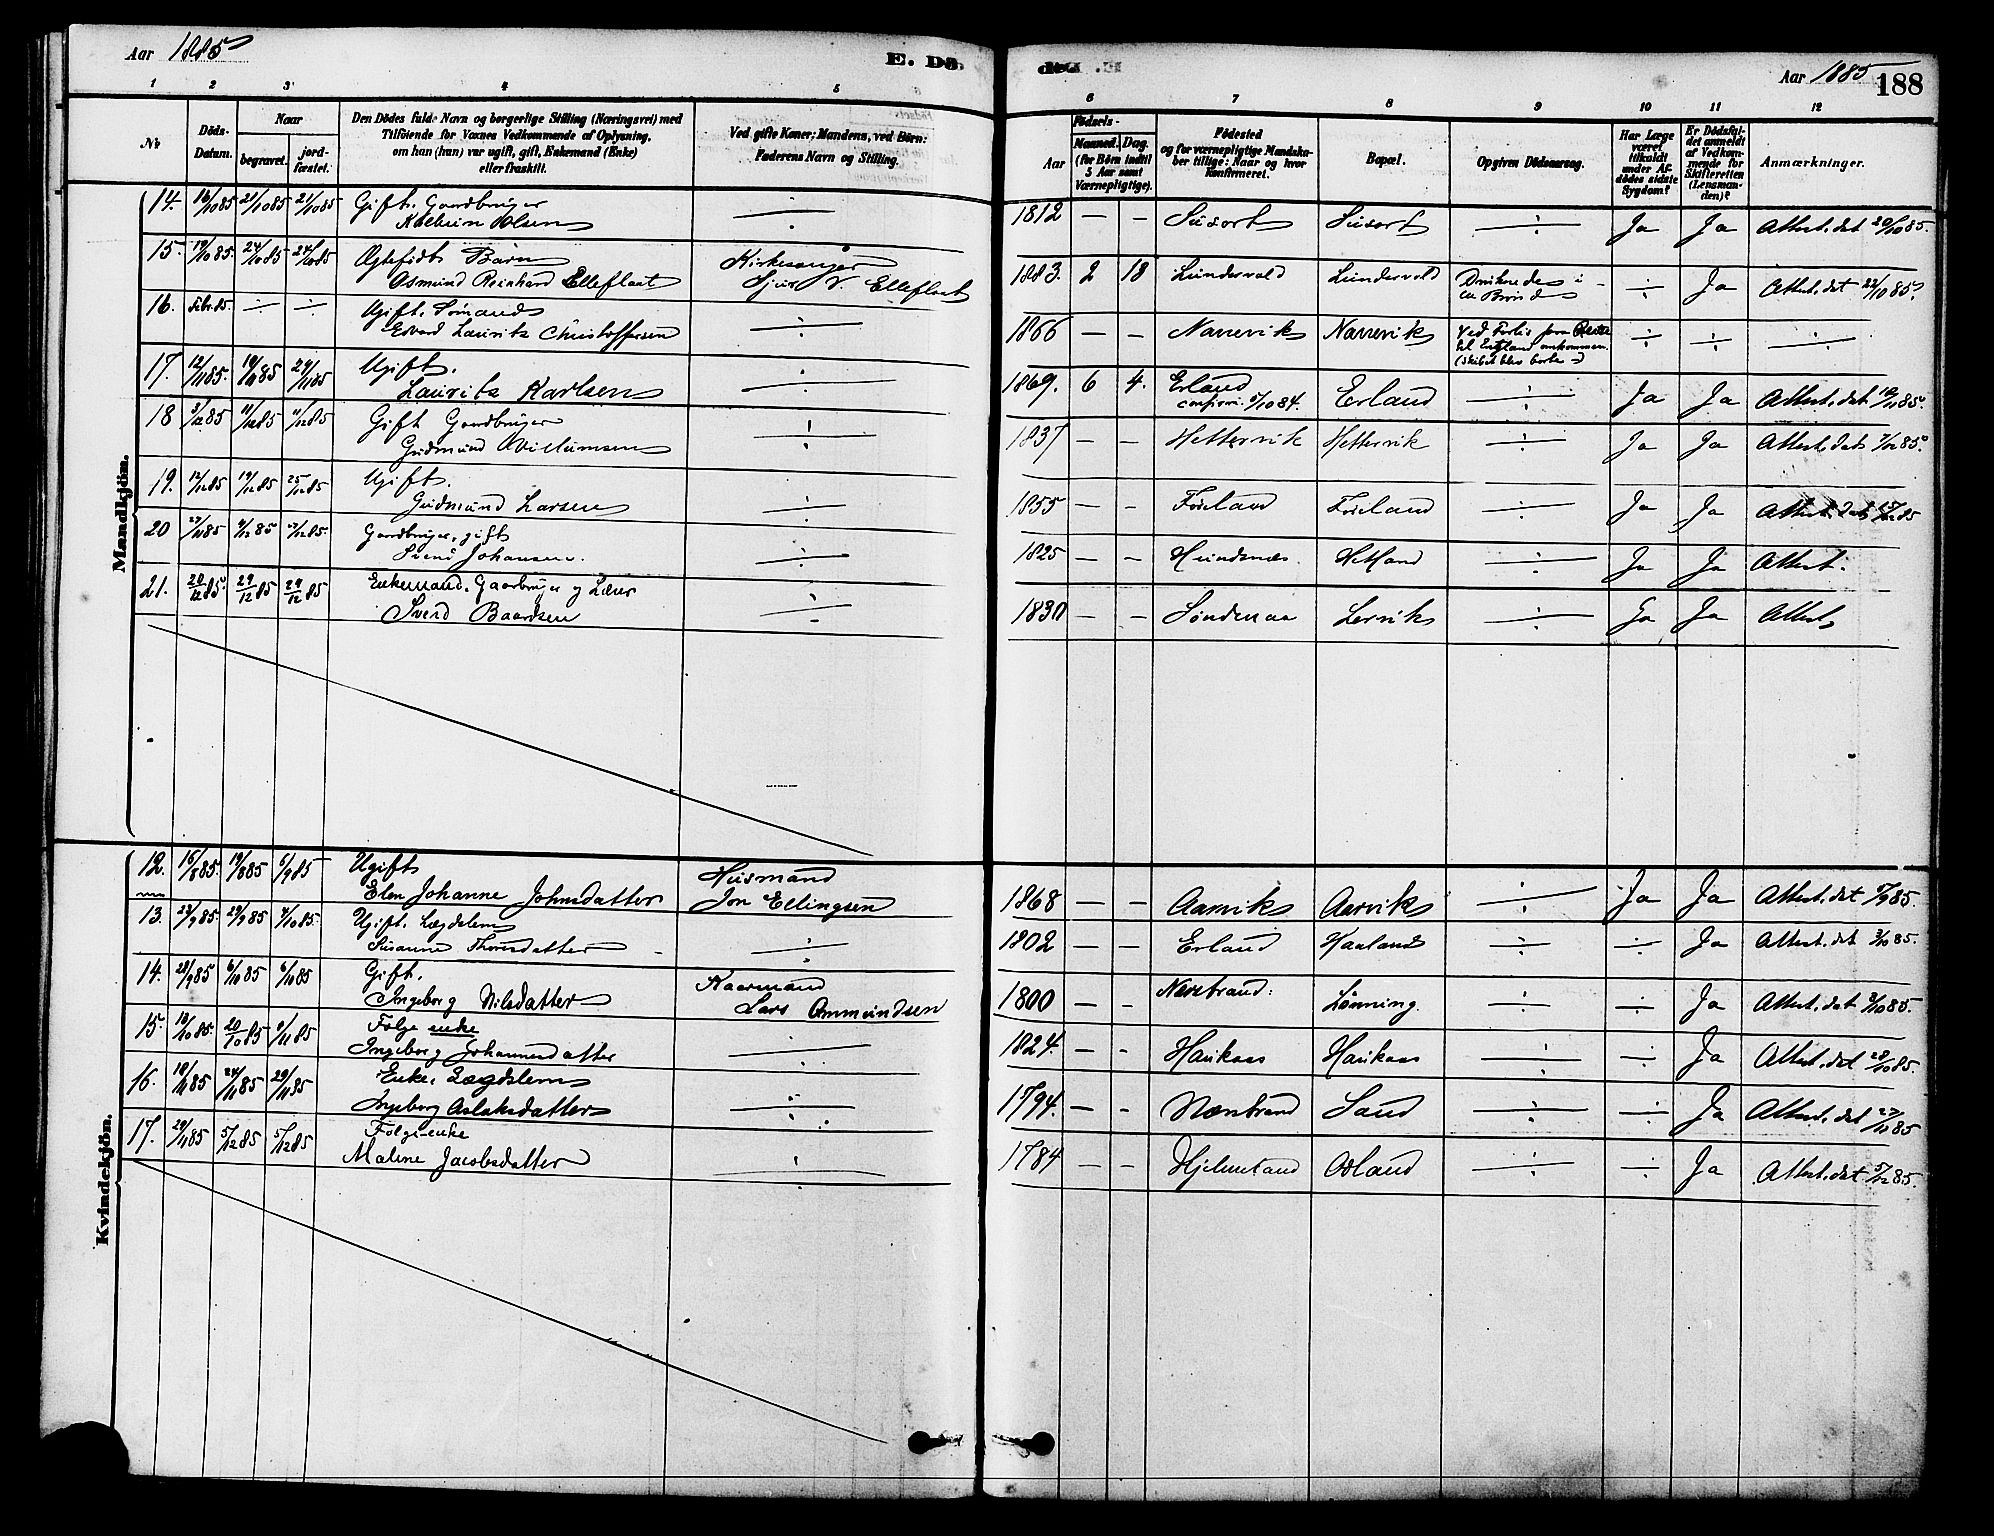 Aar 1885
E. Dö
de.
Aar 1885
188
1 2 3 4 5
6 7 8 9 10 11 12
No
Döds-Datum.
Naar
begravet.
jord-fæstet.
Den Dödes fulde Navn og borgerlige Stilling (Næringsvei) med
Tilföiende for Voxnes Vedkommende af Oplysning,
om han (hun) var ugift, gift, Enkemand (Enke)
eller fraskilt.
Ved gifte Koner: Mandens, ved Börn:
Faderens Navn og Stilling.
Födsels-
Aar
Maaned. Dag.
(for Börn indtil
5 Aar samt
Værnepligtige).
Födested
og for værnepligtige Mandska-
ber tillige: Naar og hvor
Konfirmeret.
Bopæl.
Opgiven Dödsaarsag.
Har Læge
været
tilkaldt
under Af-
dödes sidste
Sygdom?
Er Dödsfal-
det anmeldt
af Vedkom-
mende for
Skifteretten
(Lensman-
den)?
Anmærkninger.
Mandkjön.
14. 16/10 85 21/10 85 21/10 85 Gift. Gaardbruger
Kolbein Olsen ÷ 1812 — — Susort Susort ÷ Ja Ja Attest. dat 20/10 85.
15. 19/10 85. 24/10 85 24/10 85 Ægtefödt Barn
Osmund Reinhard Elleflaat Kirkesanger
Sjur N. Elleflaat 1883. 2 18 Lundervold Lundervold Druknede i
en Brönd ÷ Ja Attest. dat 22/10 85.
16. Febr. 85. ÷ ÷ Ugift. Sömand
Edvard Laurits Christoffersen ÷ 1866 — — Narrevik Narrevik Ved Forlis paa Reise
til England omkommen.
(skibet blev borte) ÷ ÷ ÷
17. 12/11 85. 19/11 85 29/11 85 Ugift.
Laurits Karlsen ÷ 1869. 6 4. Erland
confirm. 5/10 84. Erland ÷ Ja Ja Attest. dat 18/11 85.
18 3/12 85 11/12 85 11/12 85 Gift Gaardbruger
Gudmund Villumsen ÷ 1837 — — Hettervik Hettervik ÷ Ja Ja Attest. dat 7/12 85.
19. 12/12 85 19/12 85 25/12 85 Ugift.
Gudmund Larsen ÷ 1855 — — Foieland Foieland ÷ Ja Ja Attest. dat 15/12 85
20 27/11 85 4/12 85 4/12 85. Gaardbruger, gift
Johansen. ÷ 1825 — — Hundsnæs. Hetland ÷ Ja Ja Attest.
21. 20/12 85. 29/12 85 29/12 85 Enkemand. Gaarbruger og Lærer
Svend Baardsen ÷ 1830 — — Söndenaa Lervik ÷ Ja Ja Attest
Kvindekjön.
12. 15/8 85. 19/8 85 6/9 85 Ugift
Elen Johanne Johnsdatter Husmand
Jon Ellingsen 1868 — — Aarvik Aarvik ÷ Ja Ja Attest. dat 5/9 85.
13. 23/9 85. 29/9 85 4/10 85. Ugift. Lægdslem
Susanne Thorsdatter ÷ 1802 — — Erland Haaland ÷ ÷ Ja Attest. dat 3/10 85.
14. 28/9 85 6/10 85 6/10 85 Gift.
Ingeborg Nilsdatter Kaarmand
Lars Ommundsen 1800 — — Nærebrand: Lönning. ÷ ÷ Ja Attest. dat 5/10 85.
15. 13/10 85. 20/10 85 1/11 85 Folge enke
Ingeborg Johannesdatter ÷ 1824. — — Haukaas Haukaas ÷ ÷ Ja Attest. dat 28/10 85.
16. 18/11 85 24/11 85 29/11 85 Enke. Lægdslem
Ingeborg Aslaksdatter ÷ 1794. — — Nærebrand Sand ÷ ÷ Ja Attest. dat 27/11 85
17. 29/11 85 5/12 85 5/12 85 Folge-enke
Malene Jacobsdatter ÷ 1784 — — Hjelmeland Odland ÷ ÷ Ja Attest. dat 5/12 85.